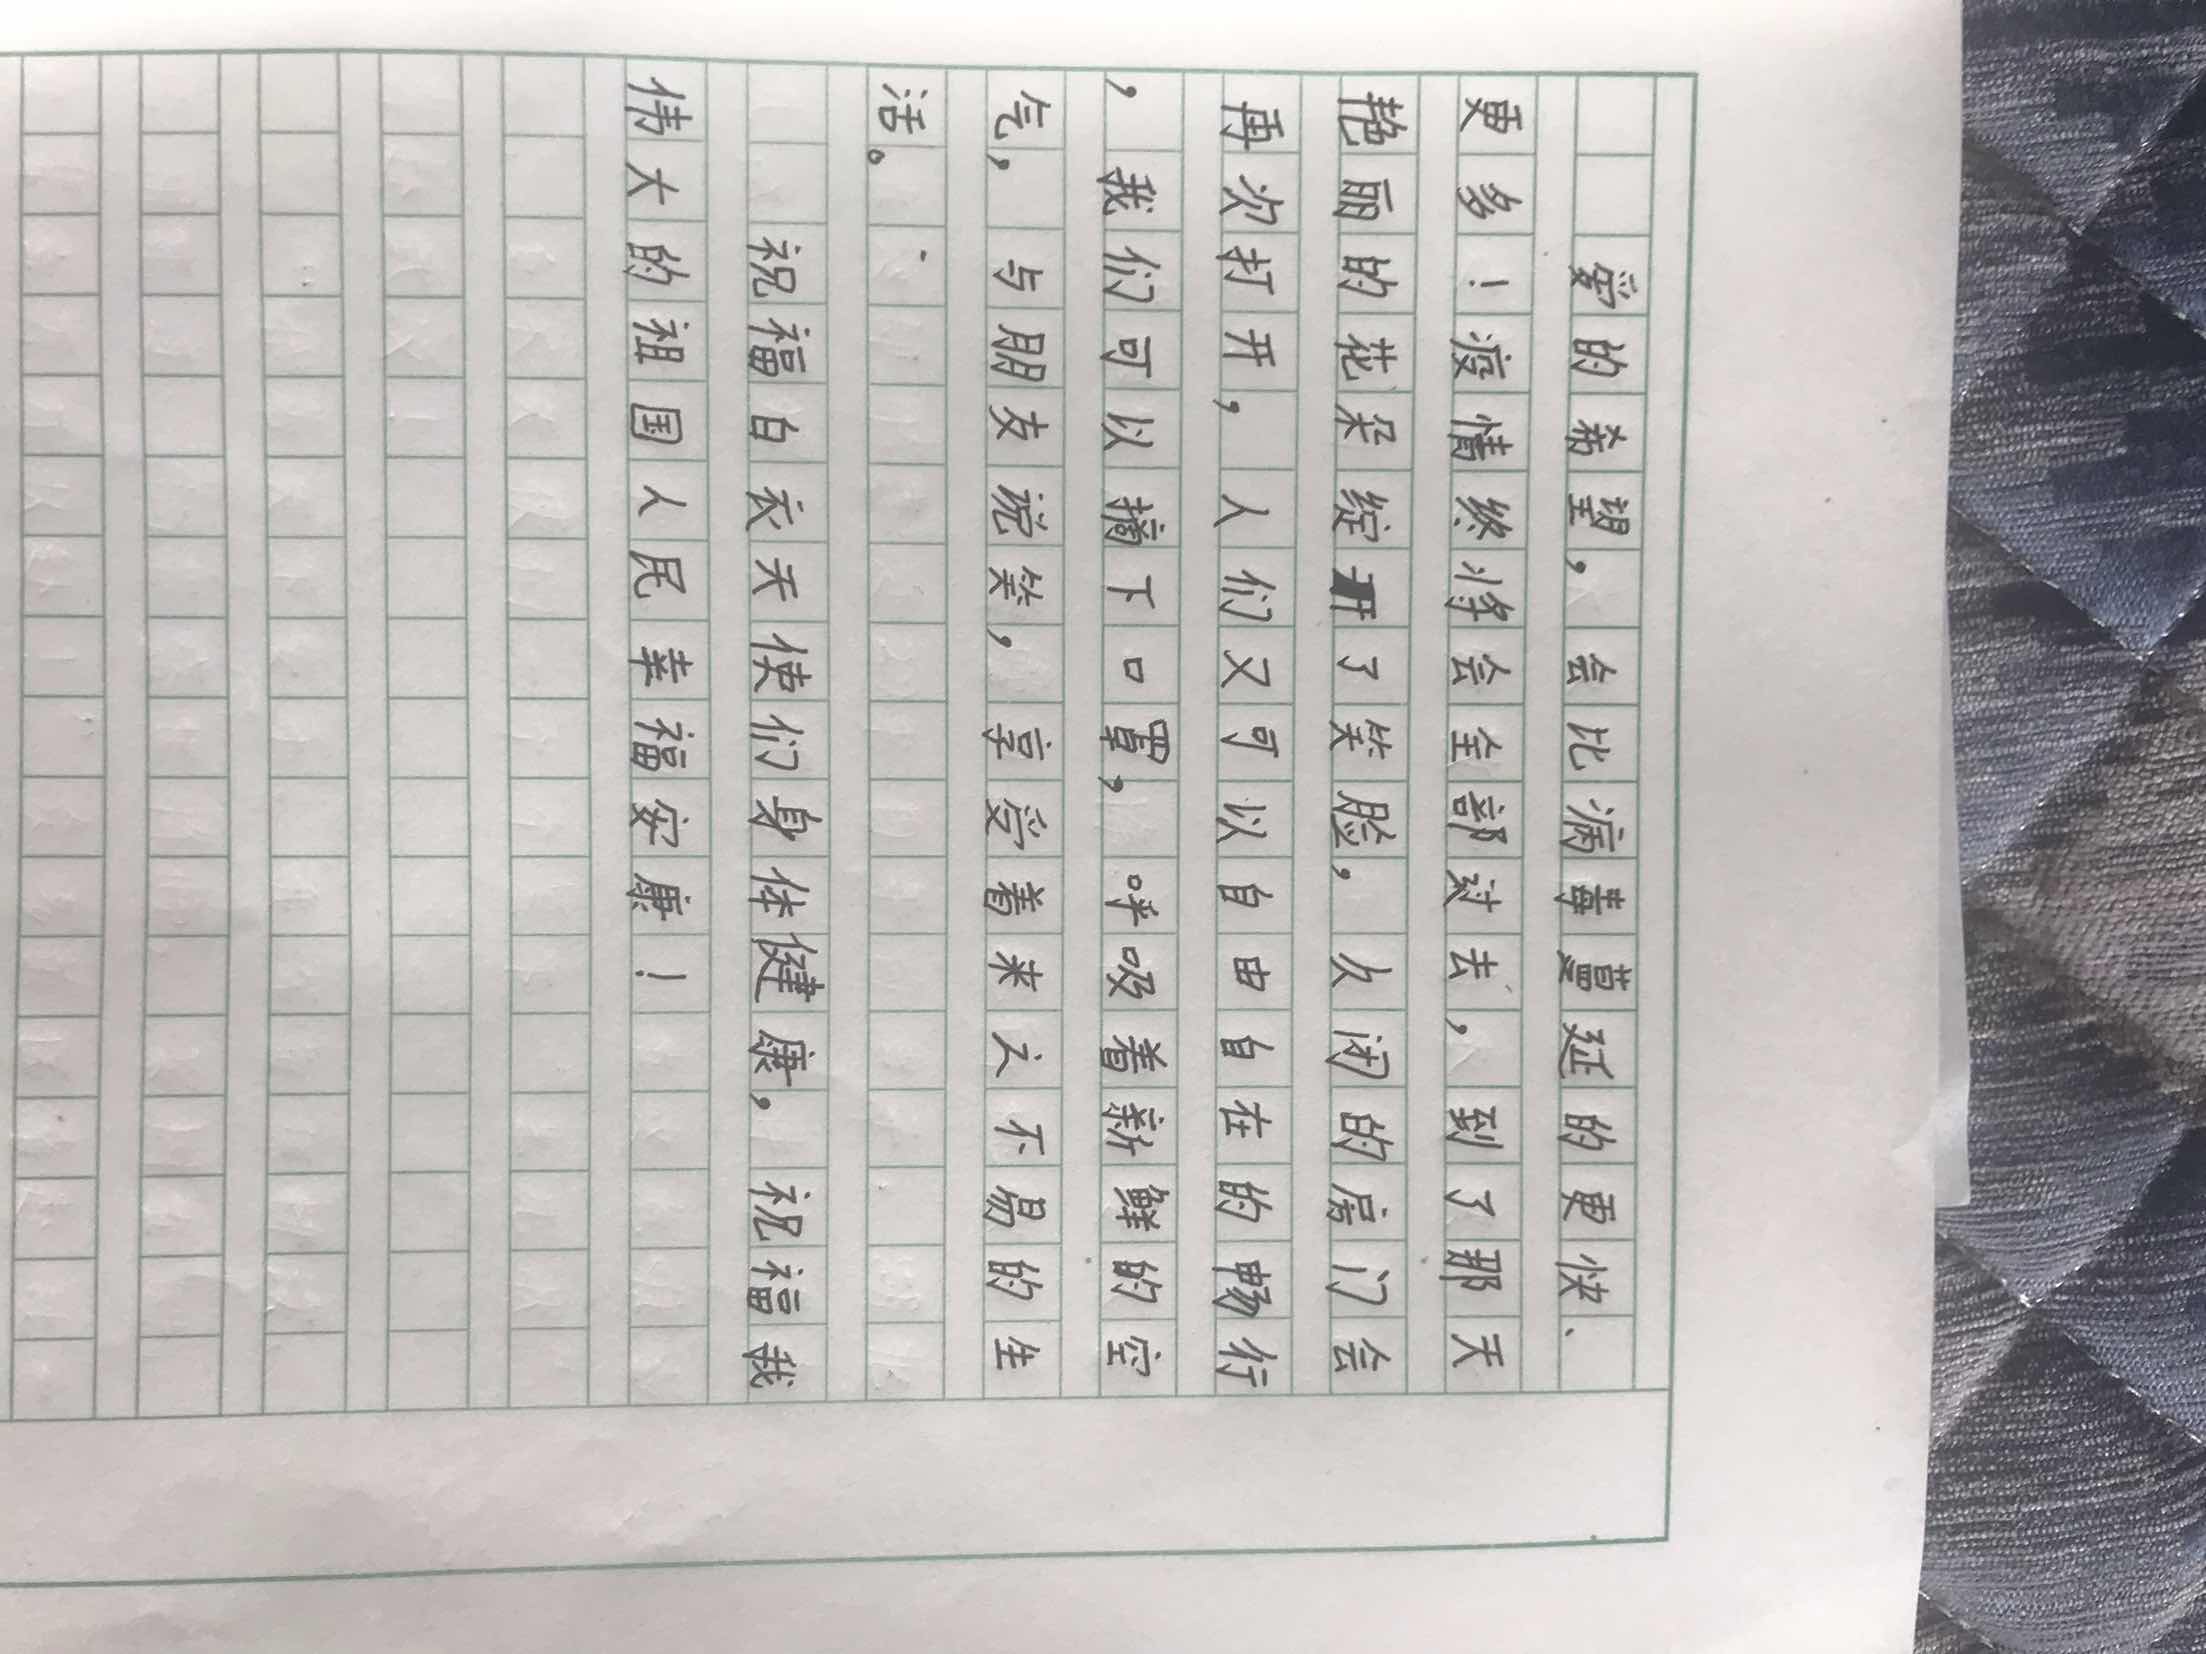 爱的希望，会比病毒蔓延的更快、
更多！疫情终将会全部过去，到了那天
艳丽的花朵绽开了笑脸，久闭的房门会
再次打开，人们又可以自由自在的畅行
，我们可以摘下口罩，呼吸着新鲜的空
气，与朋友说笑，享受着来之不易的生
活。
祝福白衣天使们身体健康，祝福我
伟大的祖国人民幸福安康！